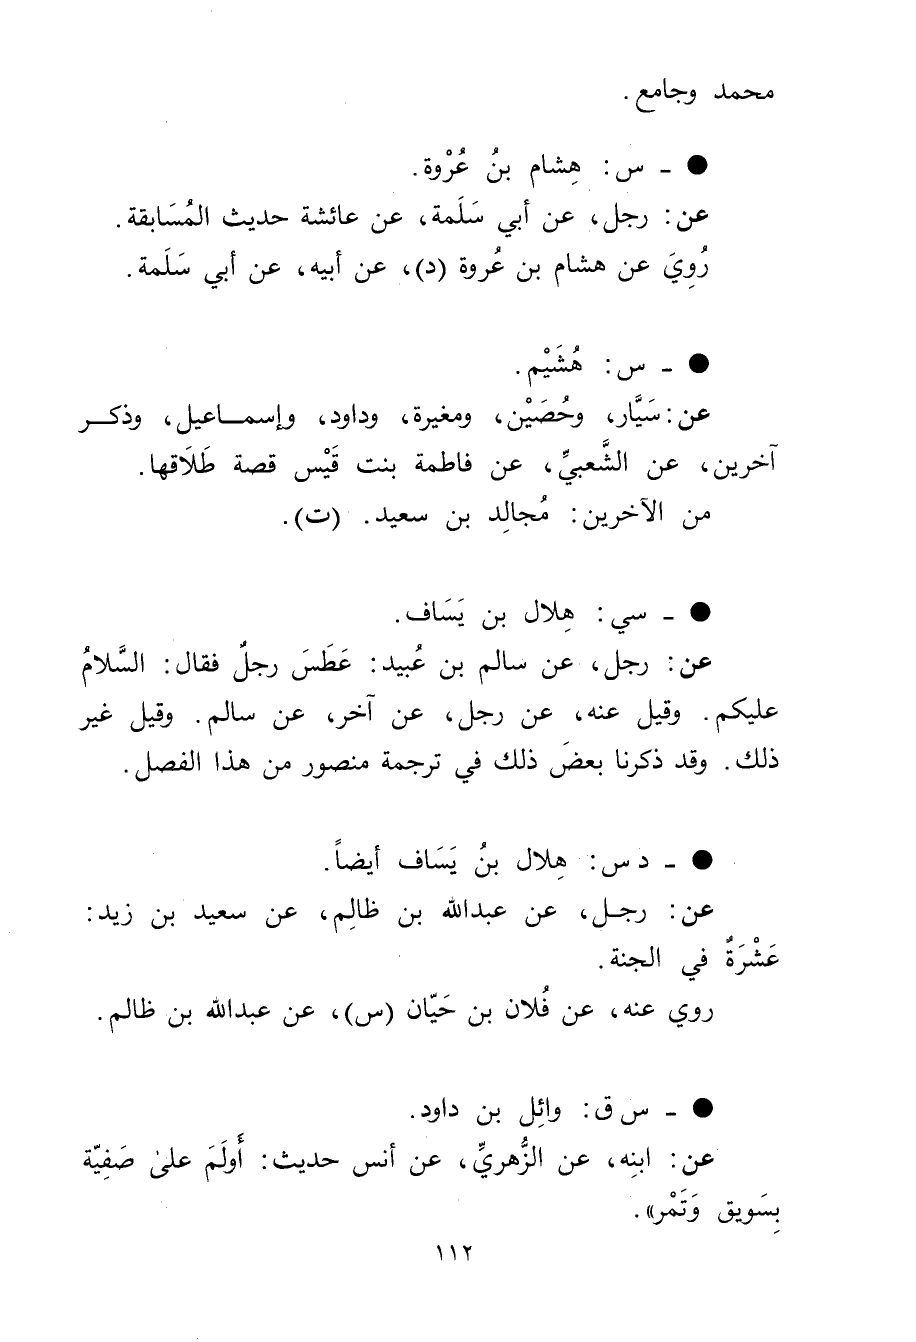 محمد وجامع.
● ـ س: هِشام بنُ عُرْوة.
عن: رجل، عن أبي سَلَمة، عن عائشة حديث المُسَابقة.
رُوِيَ عن هشام بن عُروة (د)، عن أبيه، عن أبي سَلَمة.
● ـ س: هُشَيْم.
عن: سَيَّار، وحُصَيْن، ومغيرة، وداود، وإسمــاعيل، وذكــر
آخرين، عن الشَّعبيِّ، عن فاطمة بنت قَيْس قصة طَلَاقها.
من الآخرين: مُجالِد بن سعيد. (ت).
● ـ سي: هِلال بن يَسَاف.
عن: رجل، عن سالم بن عُبيد: عَطَسَ رجلٌ فقال: السَّلامُ
عليكم. وقيل عنه، عن رجل، عن آخر، عن سالم. وقيل غير
ذلك. وقد ذكرنا بعضَ ذلك في ترجمة منصور من هذا الفصل.
● ـ د س: هِلال بنُ يَسَاف أيضاً.
عن: رجـل، عن عبدالله بن ظالِم، عن سعيد بن زيد:
عَشْرَةٌ في الجنة.
روي عنه، عن فُلان بن حَيّان (س)، عن عبدالله بن ظالم.
● ـ س ق: وائِل بن داود.
عن: ابنِه، عن الزُّهريِّ، عن أنس حديث: أَولَمَ علىٰ صَفِيّة
بِسَويق وَتَمْر».
١١٢